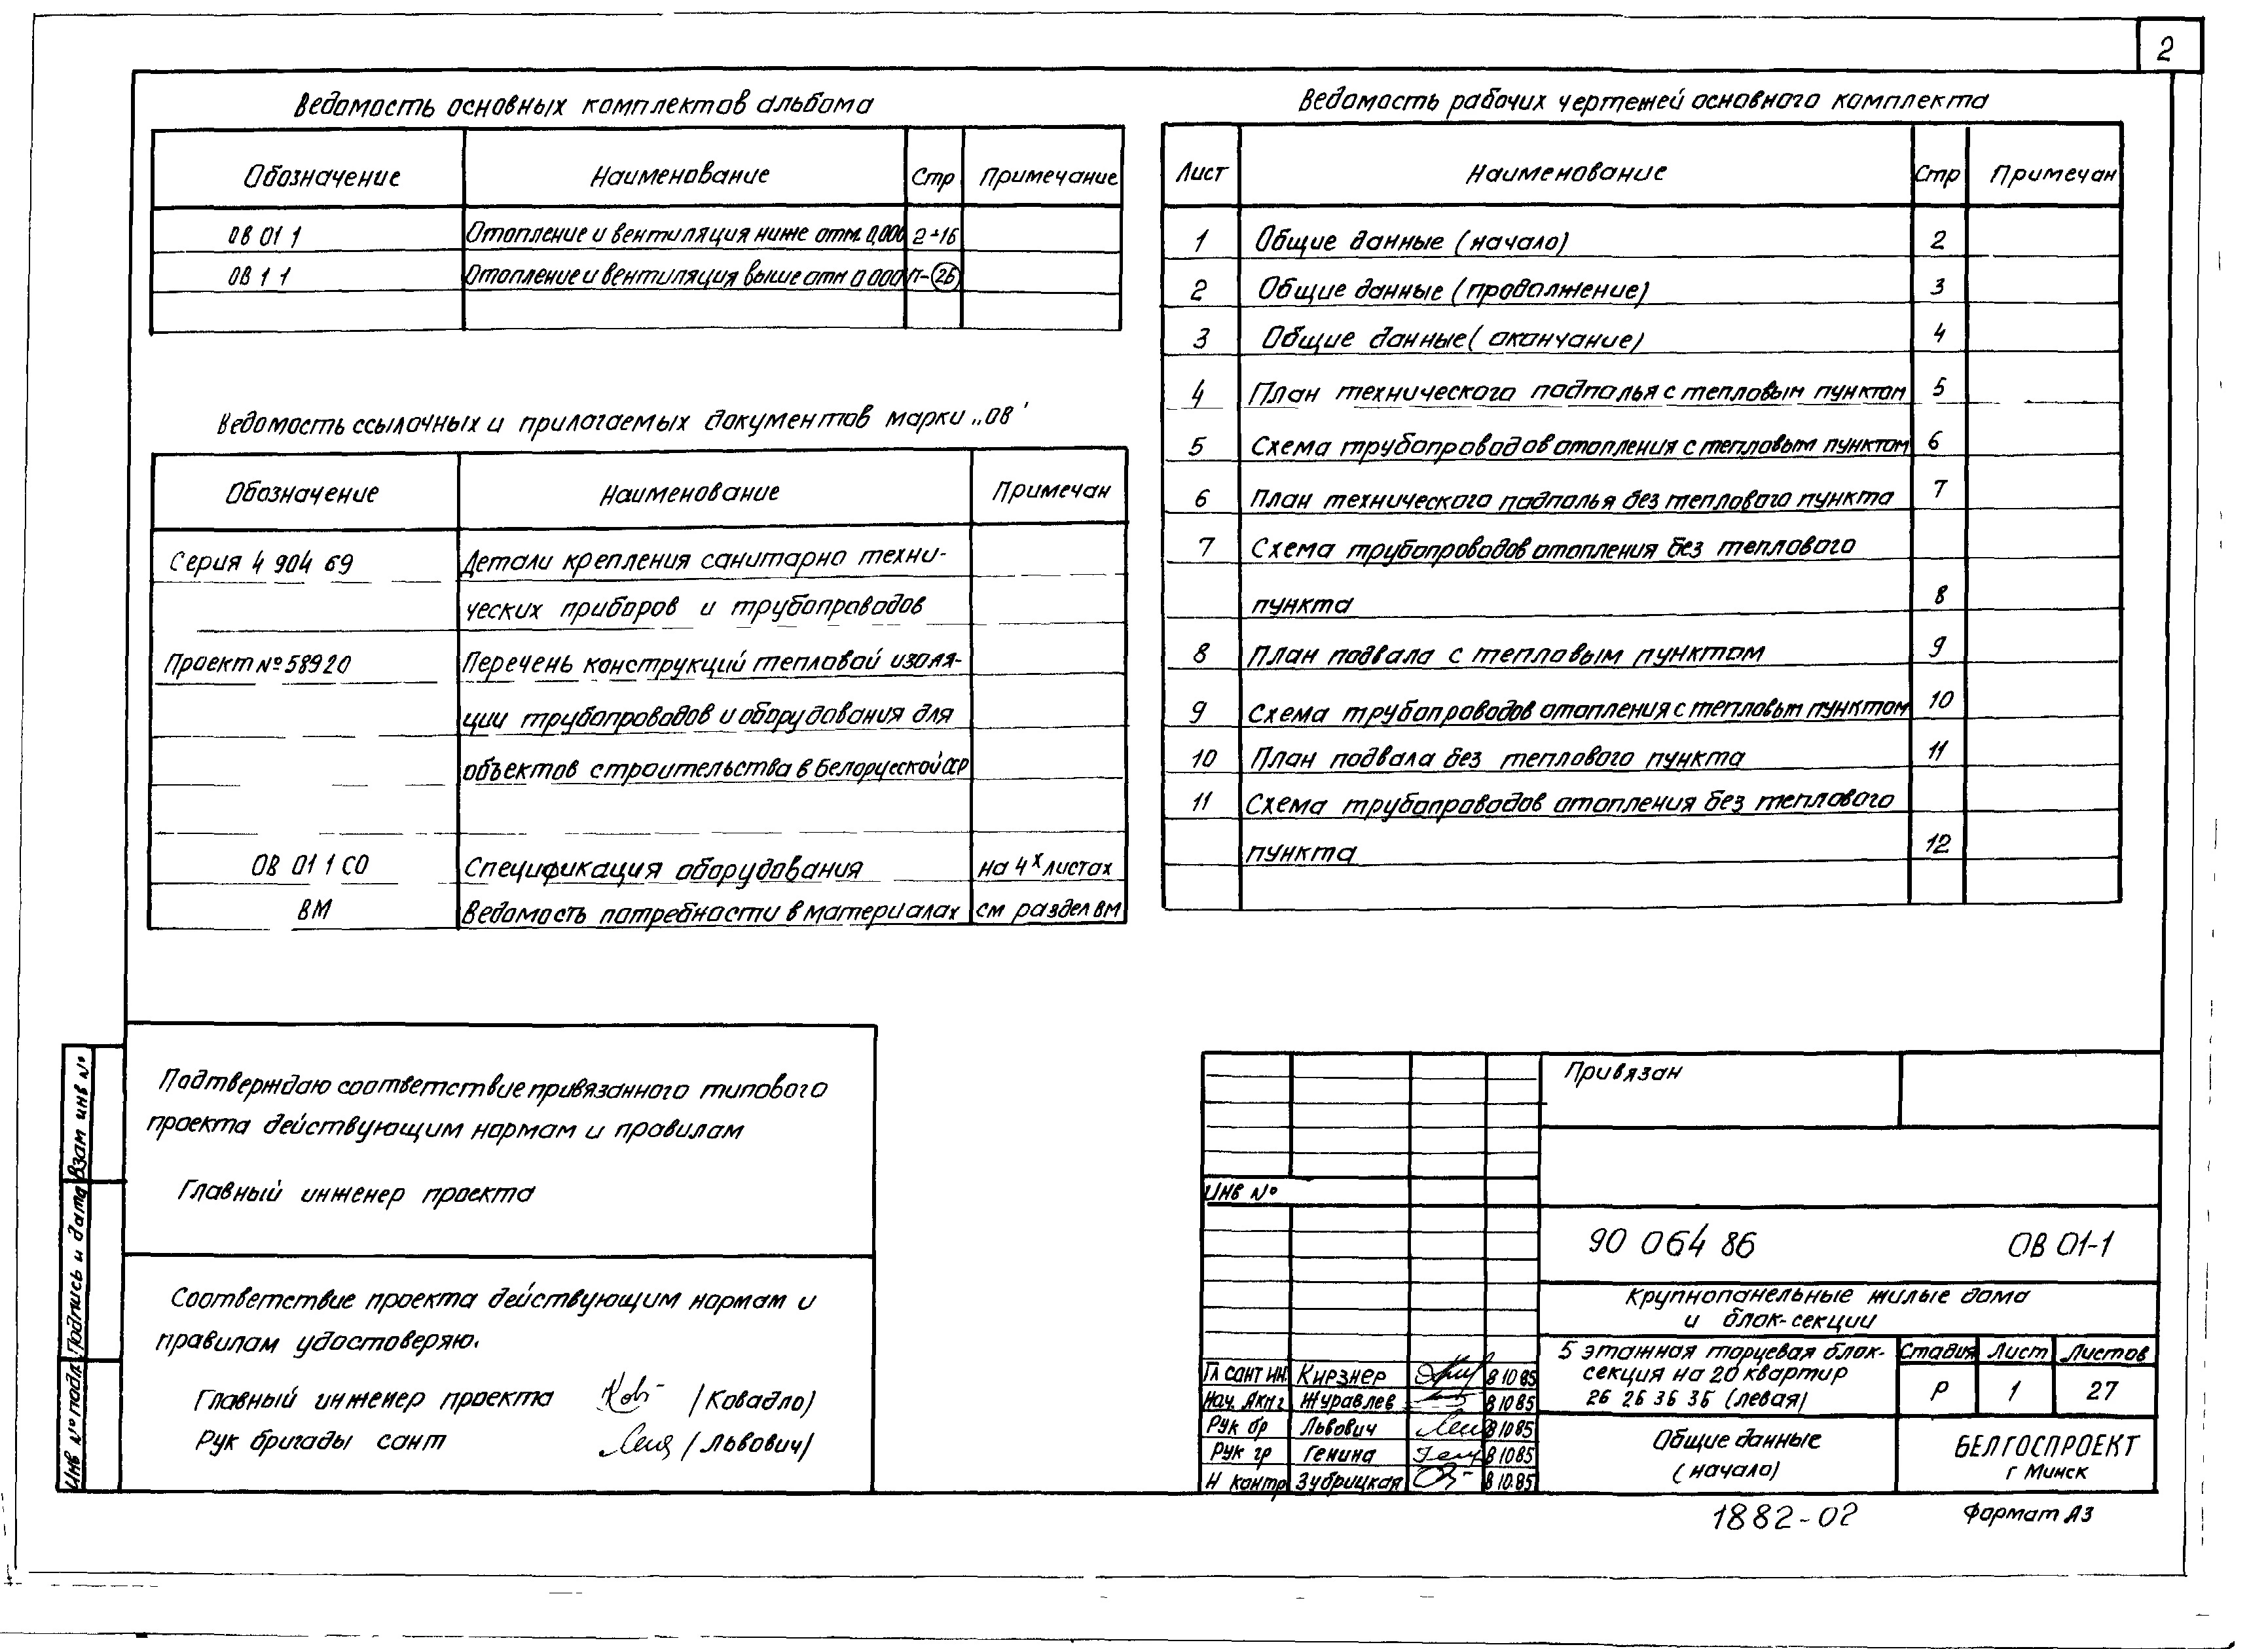 2
Ведомость основных комплектов альбома
Обозначение Наименование Стр Примечание
ОВ 01 1 Отопление и вентиляция ниже отм. 0,000 2-16
ОВ 1 1 Отопление и вентиляция выше отм 0 000 (26)
Ведомость ссылочных и прилагаемых документов марки „ОВ"
Обозначение Наименование Примечан
Серия 4 904 69 Детали крепления санитарно техни-
ческих приборов и трубопроводов
Проект №58920 Перечень конструкций тепловой изоля-
ции трубопроводов и оборудования для
объектов строительства в Белорусской ССР
ОВ 01 1 СО Спецификация оборудования на 4х листах
ВМ Ведомость потребности в материалах см раздел ВМ
Ведомость рабочих чертежей основного комплекта
Лист Наименование Стр Примечан
1 Общие данные (начало) 2
2 Общие данные (продолжение) 3
3 Общие данные (окончание) 4
4 План технического подполья с тепловым пунктом 5
5 Схема трубопроводов отопления с тепловым пунктом 6
6 План технического подполья без теплового пункта 7
7 Схема трубопроводов отопления без теплового
пункта 8
8 План подвала с тепловым пунктом 9
9 Схема трубопроводов отопления с тепловым пунктом 10
10 План подвала без теплового пункта 11
11 Схема трубопроводов отопления без теплового
пункта 12
Подтверждаю соответствие привязанного типового
проекта действующим нормам и правилам
Главный инженер проекта
Соответствие проекта действующим нормам и
правилам удостоверяю.
Главный инженер проекта /Ковадло/
Рук бригады сант /Львович/
Взам инв №
Подпись и дата
Инв № подл
Привязан
Инв №
90 064 86 ОВ 01-1
Крупнопанельные жилые дома
и блок-секции
5 этажная торцевая блок-
секция на 20 квартир
2Б 2Б 3Б 3Б (левая)
Стадия Лист Листов
Р 1 27
Гл сант ин. Кирзнер 8 10 85
Нач. Журавлев 8 10 85
Рук бр Львович 8 10 85
Рук гр Генина 8 10 85
Н контр Зубрицкая 8 10.85
Общие данные
(начало)
БЕЛГОСПРОЕКТ
г Минск
1882-02 Формат А3